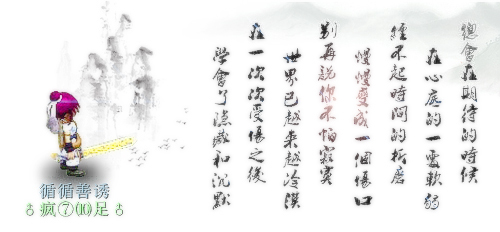 總會在期待的時候
在心底的一處軟弱
經不起時間的折磨
慢慢變成一個傷口
別再說你不怕寂寞
世界已越來越冷漠
在一次次受傷之後
學會了隱藏和沉默
循循善诱
♁疯⑦⑽足♁